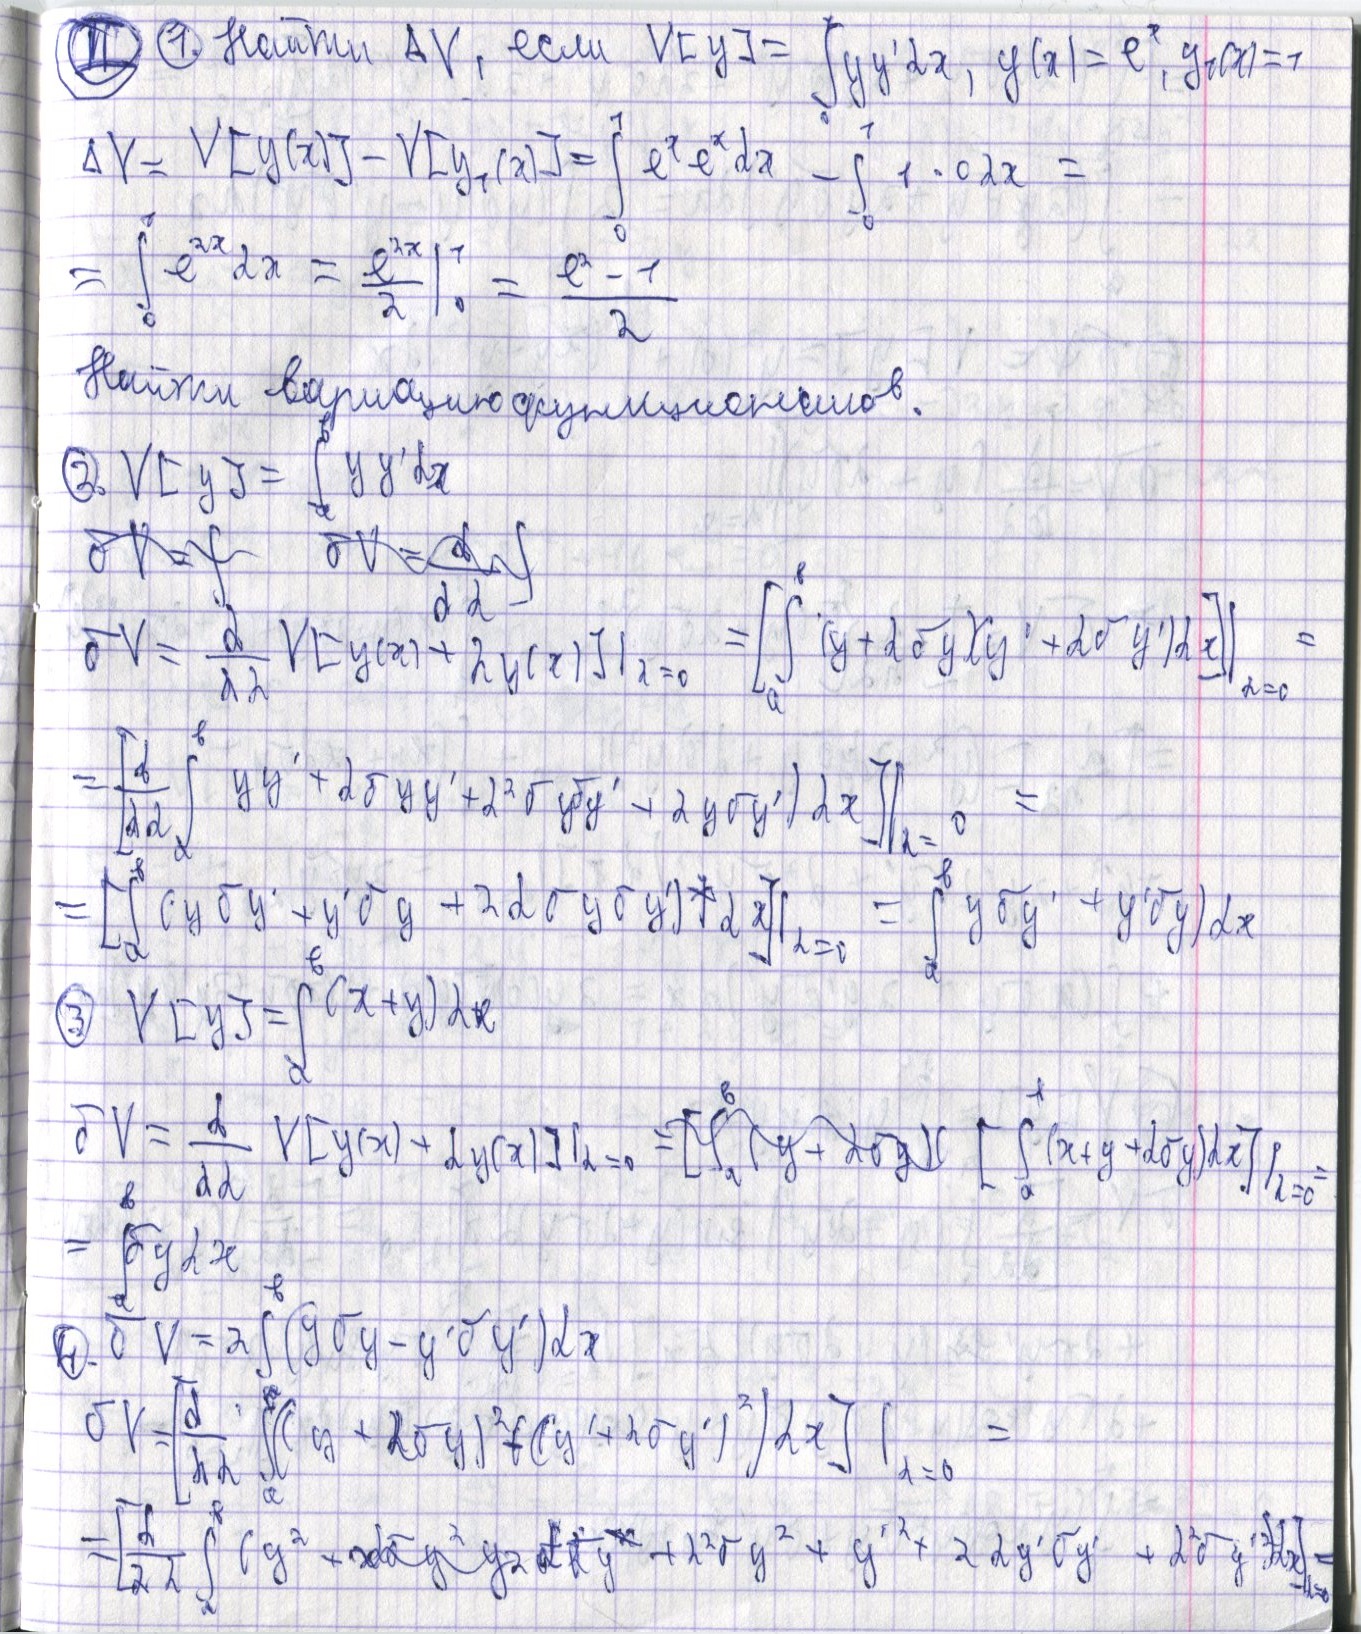 II 1. Найти ΔV, если V[y] = ∫₀¹ yy'dx, y(x) = eˣ, y₁(x) = 1
ΔV = V[y(x)] − V[y₁(x)] = ∫₀¹ eˣ eˣ dx − ∫₀¹ 1 · 0 dx =
= ∫₀¹ e²ˣ dx = e²ˣ/2 |₀¹ = (e² − 1)/2
Найти вариацию функционалов.
2. V[y] = ∫ₐᵇ yy'dx
δV = ∫ δV = d/dα ∫
δV = d/dα V[y(x) + αy(x)]|α=0 = [∫ₐᵇ (y + αδy)(y' + αδy')dx]|α=0 =
= [d/dα ∫ₐᵇ yy' + αδyy' + α²δyδy' + αyδy')dx]|α=0 =
= [∫ₐᵇ (yδy' + y'δy + 2αδyδy')dx]|α=0 = ∫ₐᵇ yδy' + y'δy)dx
3 V[y] = ∫ₐᵇ (x+y)dx
δV = d/dα V[y(x) + αy(x)]|α=0 = [∫ₐᵇ (y + αδy)( [∫ₐᵇ (x+y+αδy)dx]|α=0 =
= ∫ₐᵇ δydx
4. δV = 2∫ₐᵇ (yδy − y'δy')dx
δV = [d/dα ∫ₐᵇ ((y + αδy)² + (y' + αδy')²)dx]|α=0 =
= [d/dα ∫ₐᵇ (y² + α²δy² + y'² + 2αy'δy' + α²δy'²)dx]|α=0 =